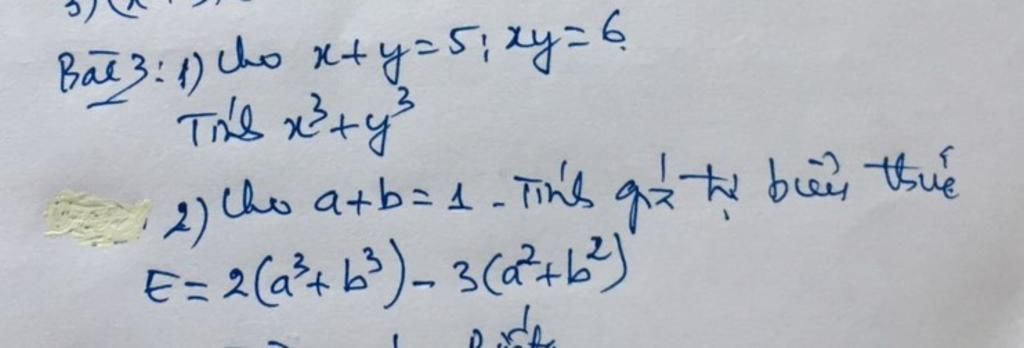 3) (x
Bài 3: 1) Cho x + y = 5; xy = 6.
Tính x³ + y³
2) Cho a + b = 1. Tính giá trị biểu thức
E = 2(a³ + b³) - 3(a² + b²)